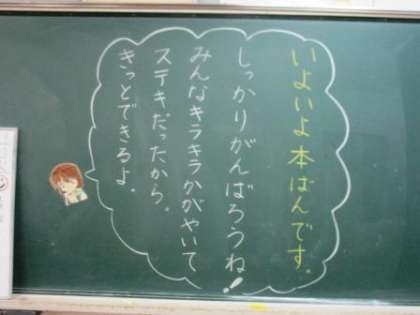 いよいよ本ばんです。
しっかりがんばろうね!
みんなキラキラかがやいて
ステキだったから。
きっとできるよ。